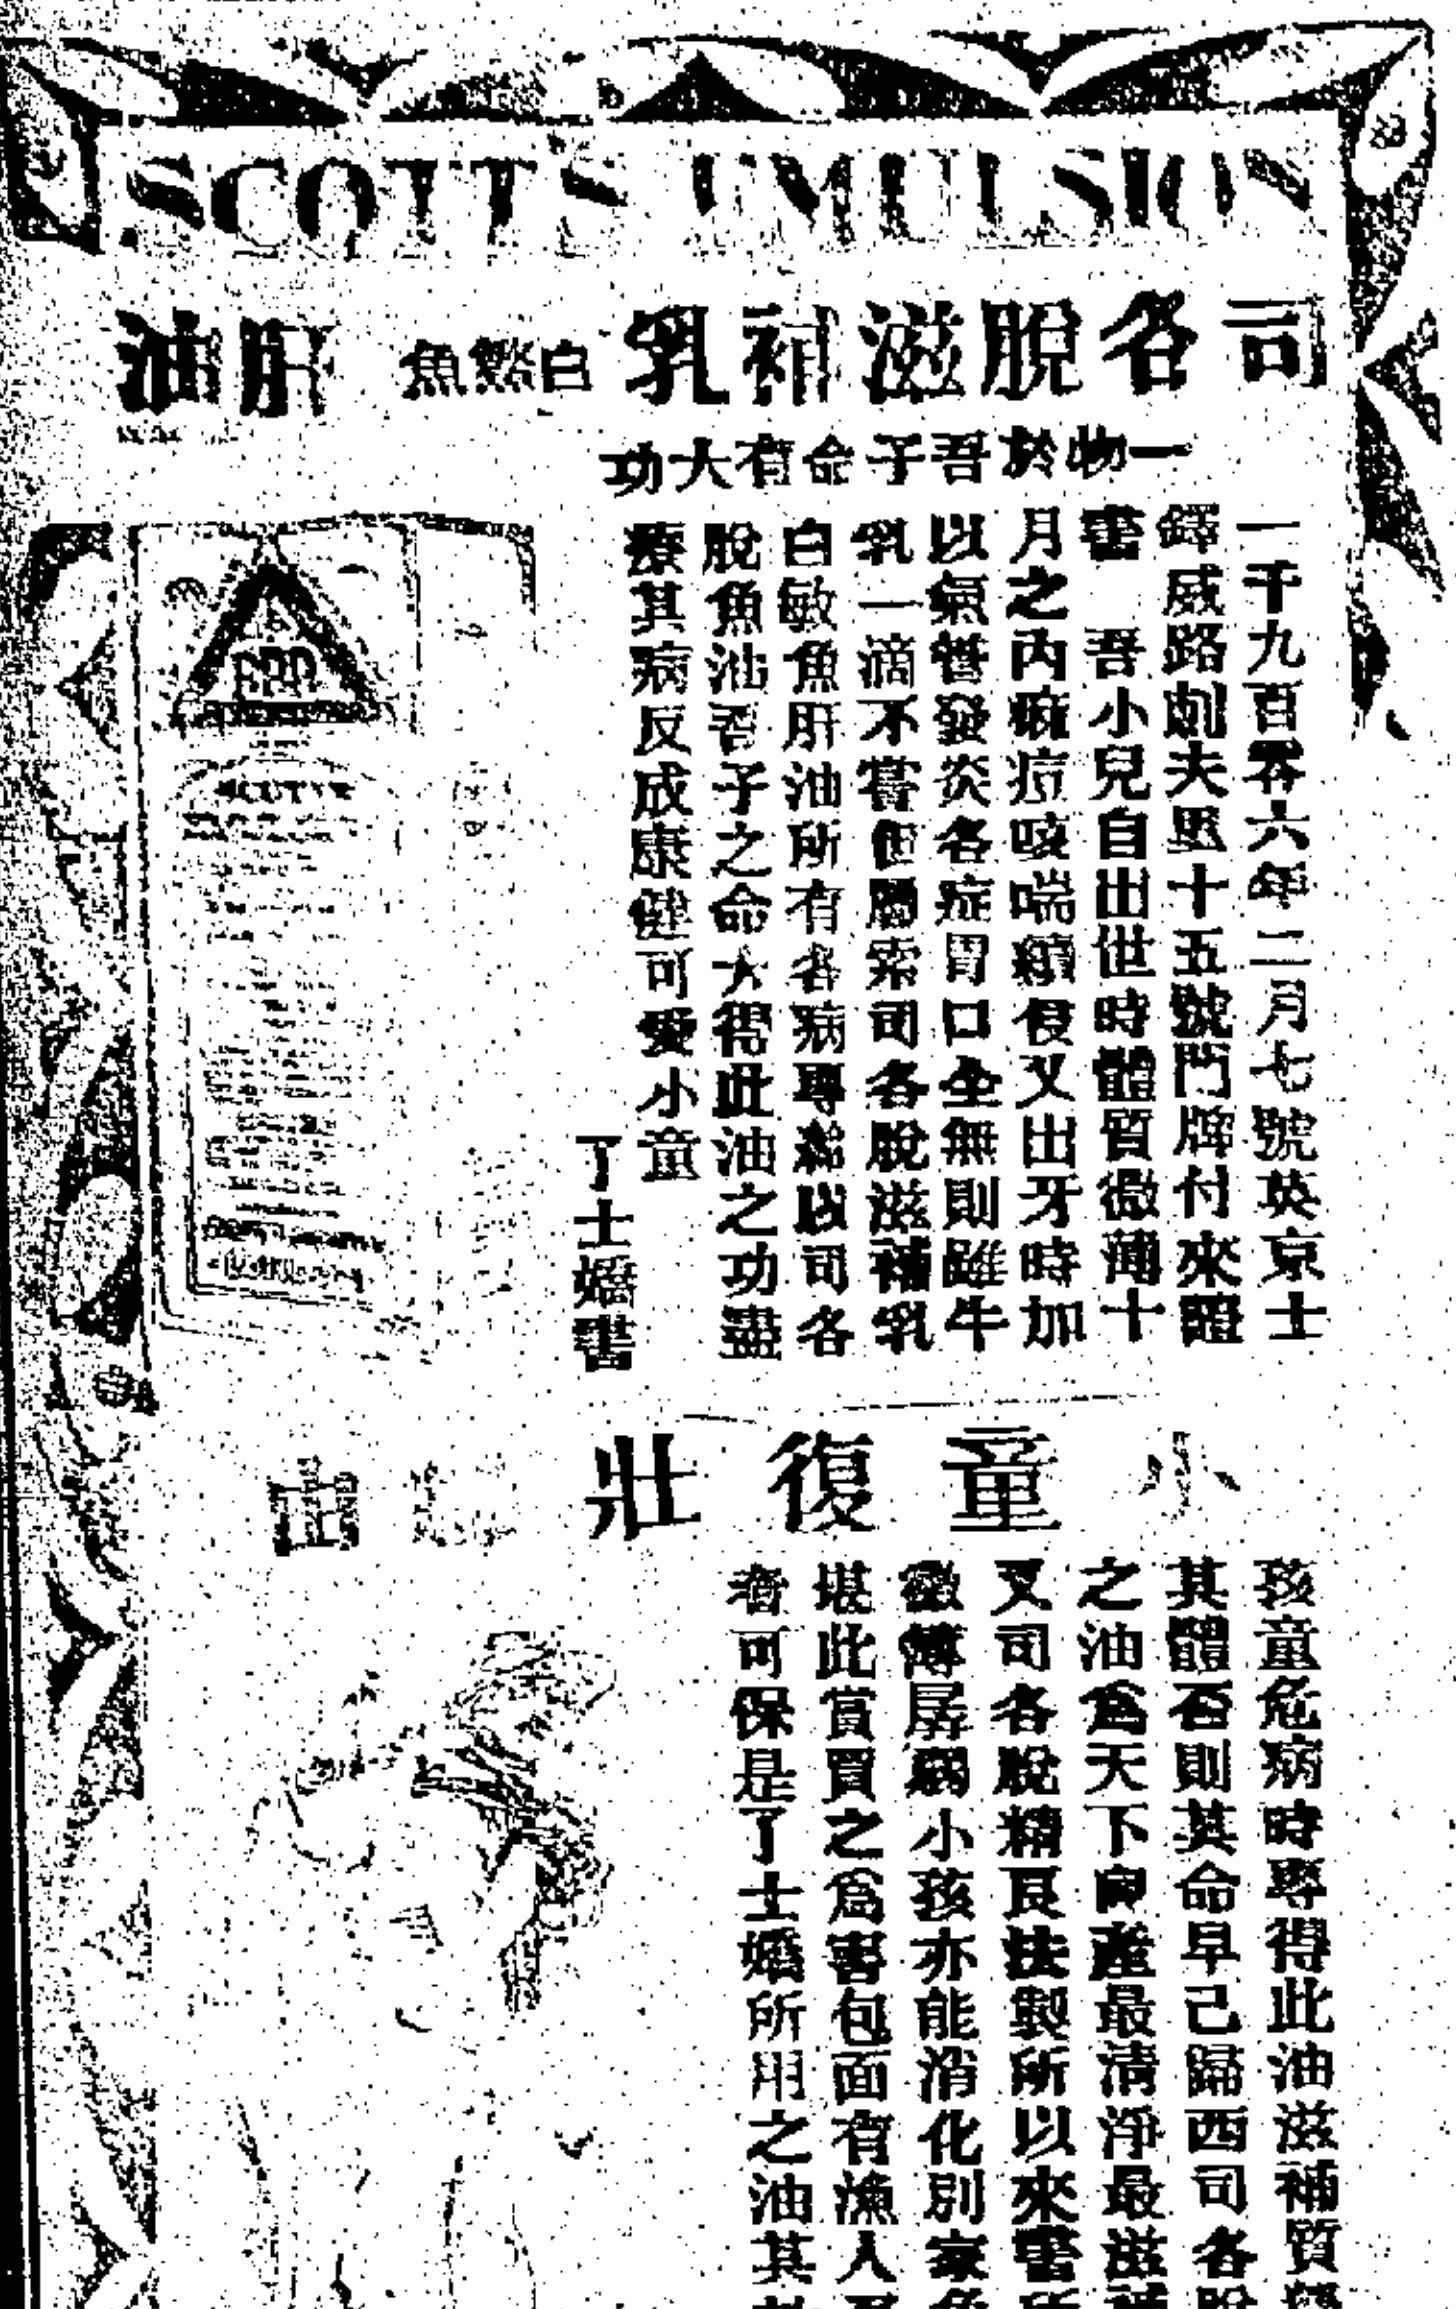 SCOTT'S EMULSION
司各脫滋補乳白鰵魚肝油
一物於吾子命有大功
一千九百零六年二月七號英京士
鐸威路刺夫思十五號門牌付來證
書　吾小兒自出世時體質微薄十
月之內痲痘咳喘續侵又出牙時加
以氣管發炎各症胃口全無則雖牛
乳一滴不嘗但屬索司各脫滋補乳
白敏魚肝油所有各病專靠以司各
脫魚油吾子之命大得此油之功盡
療其病反成康健可愛小童
丁士嬌書
小童復壯
孩童危病時專得此油滋補質
其體否則其命早已歸西司各脫
之油為天下向產最清淨最滋補
又司各脫精良法製所以來書所
微薄孱弱小孩亦能消化別家魚
堪此賞買之為害包面有漁人
者可保是丁士嬌所用之油其